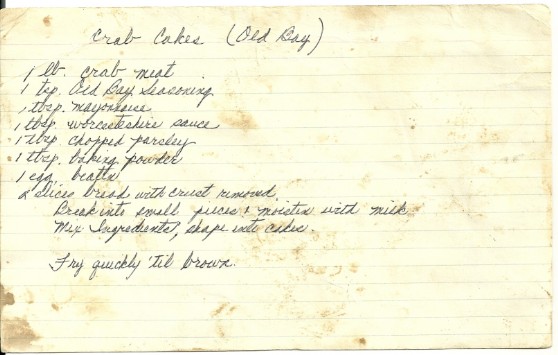 Crab Cakes (Old Bay)
1 lb. crab meat
1 tsp. Old Bay Seasoning
1 tbsp. mayonnaise
1 tbsp. worcesteshire sauce
1 tbsp chopped parsley
1 tbsp. baking powder
1 egg, beaten
2 slices bread with crust removed.
Break into small pieces & moisten with milk
Mix Ingredients, shape into cakes.
Fry quickly 'til brown.